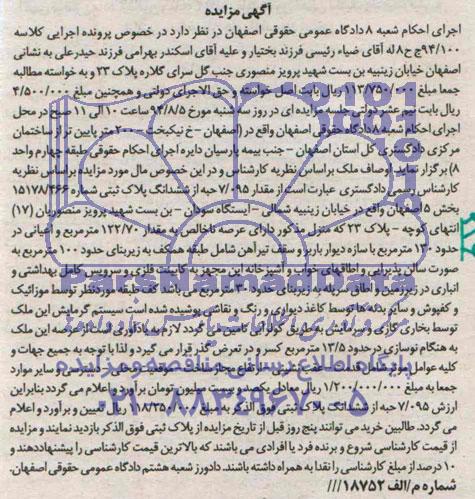 آگهی مزایده
اجرای احکام شعبه ۸ دادگاه عمومی حقوقی اصفهان در نظر دارد در خصوص پرونده اجرایی کلاسه
۹۴/۱۰۰ ج ح ۸ له آقای ضیاء رئیسی فرزند بختیار و علیه آقای اسکندر بهرامی فرزند حیدرعلی به نشانی
اصفهان خیابان زینبیه بن بست شهید پرویز منصوری جنب گل سرای گلاره پلاک ۲۳ و به خواسته مطالبه
جمعا مبلغ ۱۱۳/۷۵۰/۰۰۰ ریال بابت اصل خواسته و حق الاجرای دولتی و همچنین مبلغ ۴/۵۰۰/۰۰۰
ریال بابت نیم عشر دولتی جلسه مزایده ای در روز سه شنبه مورخ ۹۴/۸/۵ ساعت ۱۰ الی ۱۱ صبح در محل
اجرای احکام شعبه ۸ دادگاه حقوقی اصفهان واقع در (اصفهان - خ نیکبخت - ۲۰۰ متر پایین تر از ساختمان
مرکزی دادگستری کل استان اصفهان - جنب بیمه پارسیان دایره اجرای احکام حقوقی طبقه چهارم واحد
۸) برگزار نماید. اوصاف ملک براساس نظریه کارشناس و در این خصوص مال مورد مزایده براساس نظریه
کارشناس رسمی دادگستری عبارت است از مقدار ۷/۰۹۵ حبه از ششدانگ پلاک ثبتی شماره ۱۵۱۷۸/۴۶۶
بخش ۵ اصفهان واقع در خیابان زینبیه شمالی - ایستگاه سودان - بن بست شهید پرویز منصوریان (۱۷)
انتهای کوچه - پلاک ۲۳ که منزل مذکور دارای عرصه ناخالص به مقدار ۱۲۲/۷۰ مترمربع و اعیانی در
حدود ۱۳۰ مترمربع با سازه دیوار باربر و سقف تیرآهن شامل طبقه همکف به زیربنای حدود ۱۰۰ مترمربع به
صورت سالن پذیرایی و اطاقهای خواب و آشپزخانه اپن مجهز به کابینت فلزی و سرویس کامل بهداشتی و
انباری در زیرزمین و اطاق سرپله به زیربنای حدود ۳۰ مترمربع می باشد کف طبقه موردنظر توسط موزائیک
و کفپوش و سایر بدنه ها توسط کاغذ دیواری و رنگ و نقاشی پوشیده شده است سیستم گرمایش این ملک
توسط بخاری گازی و سرمایش به طریق کولر آبی تامین می گردد لازم به یادآوری است از عرصه این ملک
به هنگام نوسازی در حدود ۱۳/۵ مترمربع کسر و در تعرض گذر قرار می گیرد و لذا با توجه به جمیع جهات و
کلیه عوامل موثر شامل قدمت عقب نشینی ارتفاع مجاز ساخت موقعیت محلی دسترسی و سایر موارد
جمعا به مبلغ ۱/۲۰۰/۰۰۰/۰۰۰ ریال معادل یکصد و بیست میلیون تومان برآورد و اعلام می گردد بنابراین
ارزش ۷/۰۹۵ حبه از ششدانگ پلاک ثبتی فوق الذکر به مبلغ ریال تعیین و برآورد و اعلام
می گردد. طالبین خرید می توانند پنج روز قبل از تاریخ مزایده از پلاک ثبتی فوق الذکر بازدید نمایند و مزایده
از قیمت کارشناسی شروع و برنده فرد یا افرادی می باشند که بالاترین قیمت کارشناسی را پیشنهاد دهند و
۱۰ درصد از مبلغ کارشناسی را نقدا به همراه داشته باشند. دادورز شعبه هشتم دادگاه عمومی حقوقی اصفهان.
شماره م/الف ۱۸۷۵۲///
پایگاه اطلاع رسانی مناقصه و مزایده
۰۲۱-۸۸۳۴۹۶۷۰-۵